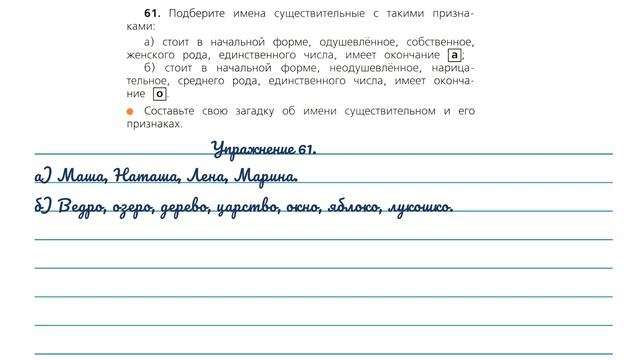 61. Подберите имена существительные с такими призна-
ками:
а) стоит в начальной форме, одушевлённое, собственное,
женского рода, единственного числа, имеет окончание а;
б) стоит в начальной форме, неодушевлённое, нарица-
тельное, среднего рода, единственного числа, имеет оконча-
ние о.
Составьте свою загадку об имени существительном и его
признаках.
Упражнение 61.
а) Маша, Наташа, Лена, Марина.
б) Ведро, озеро, дерево, царство, окно, яблоко, лукошко.